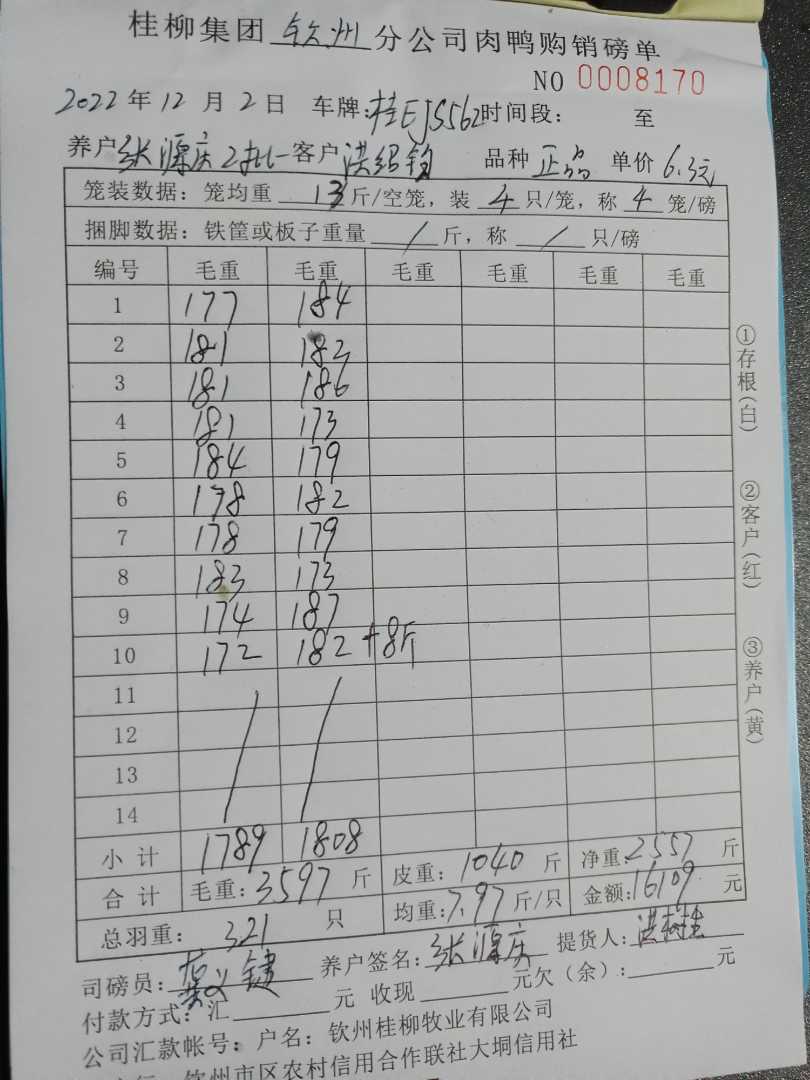 桂柳集团 钦州 分公司肉鸭购销磅单
NO 0008170
2022 年 12 月 2 日 车牌:桂EJS562 时间段: 至
养户 张源庆 2批 客户 洪绍钧 品种 正品 单价 6.3元
笼装数据: 笼均重 13 斤/空笼, 装 4 只/笼, 称 4 笼/磅
捆脚数据: 铁筐或板子重量 / 斤, 称 / 只/磅
编号 毛重 毛重 毛重 毛重 毛重 毛重
1 177 184
2 181 182
3 181 186
4 181 173
5 184 179
6 178 182
7 178 179
8 183 173
9 174 187
10 172 182 +8斤
11
12
13
14
小计 1789 1808
合计 毛重: 3597 斤 皮重: 1040 斤 净重: 2557 斤
总羽重: 321 只 均重: 7.97 斤/只 金额: 16109 元
司磅员: 养户签名: 张源庆 提货人:
付款方式: 汇 元 收现 元欠(余): 元
公司汇款帐号: 户名: 钦州桂柳牧业有限公司
钦州市区农村信用合作联社大垌信用社
①存根(白)
②客户(红)
③养户(黄)